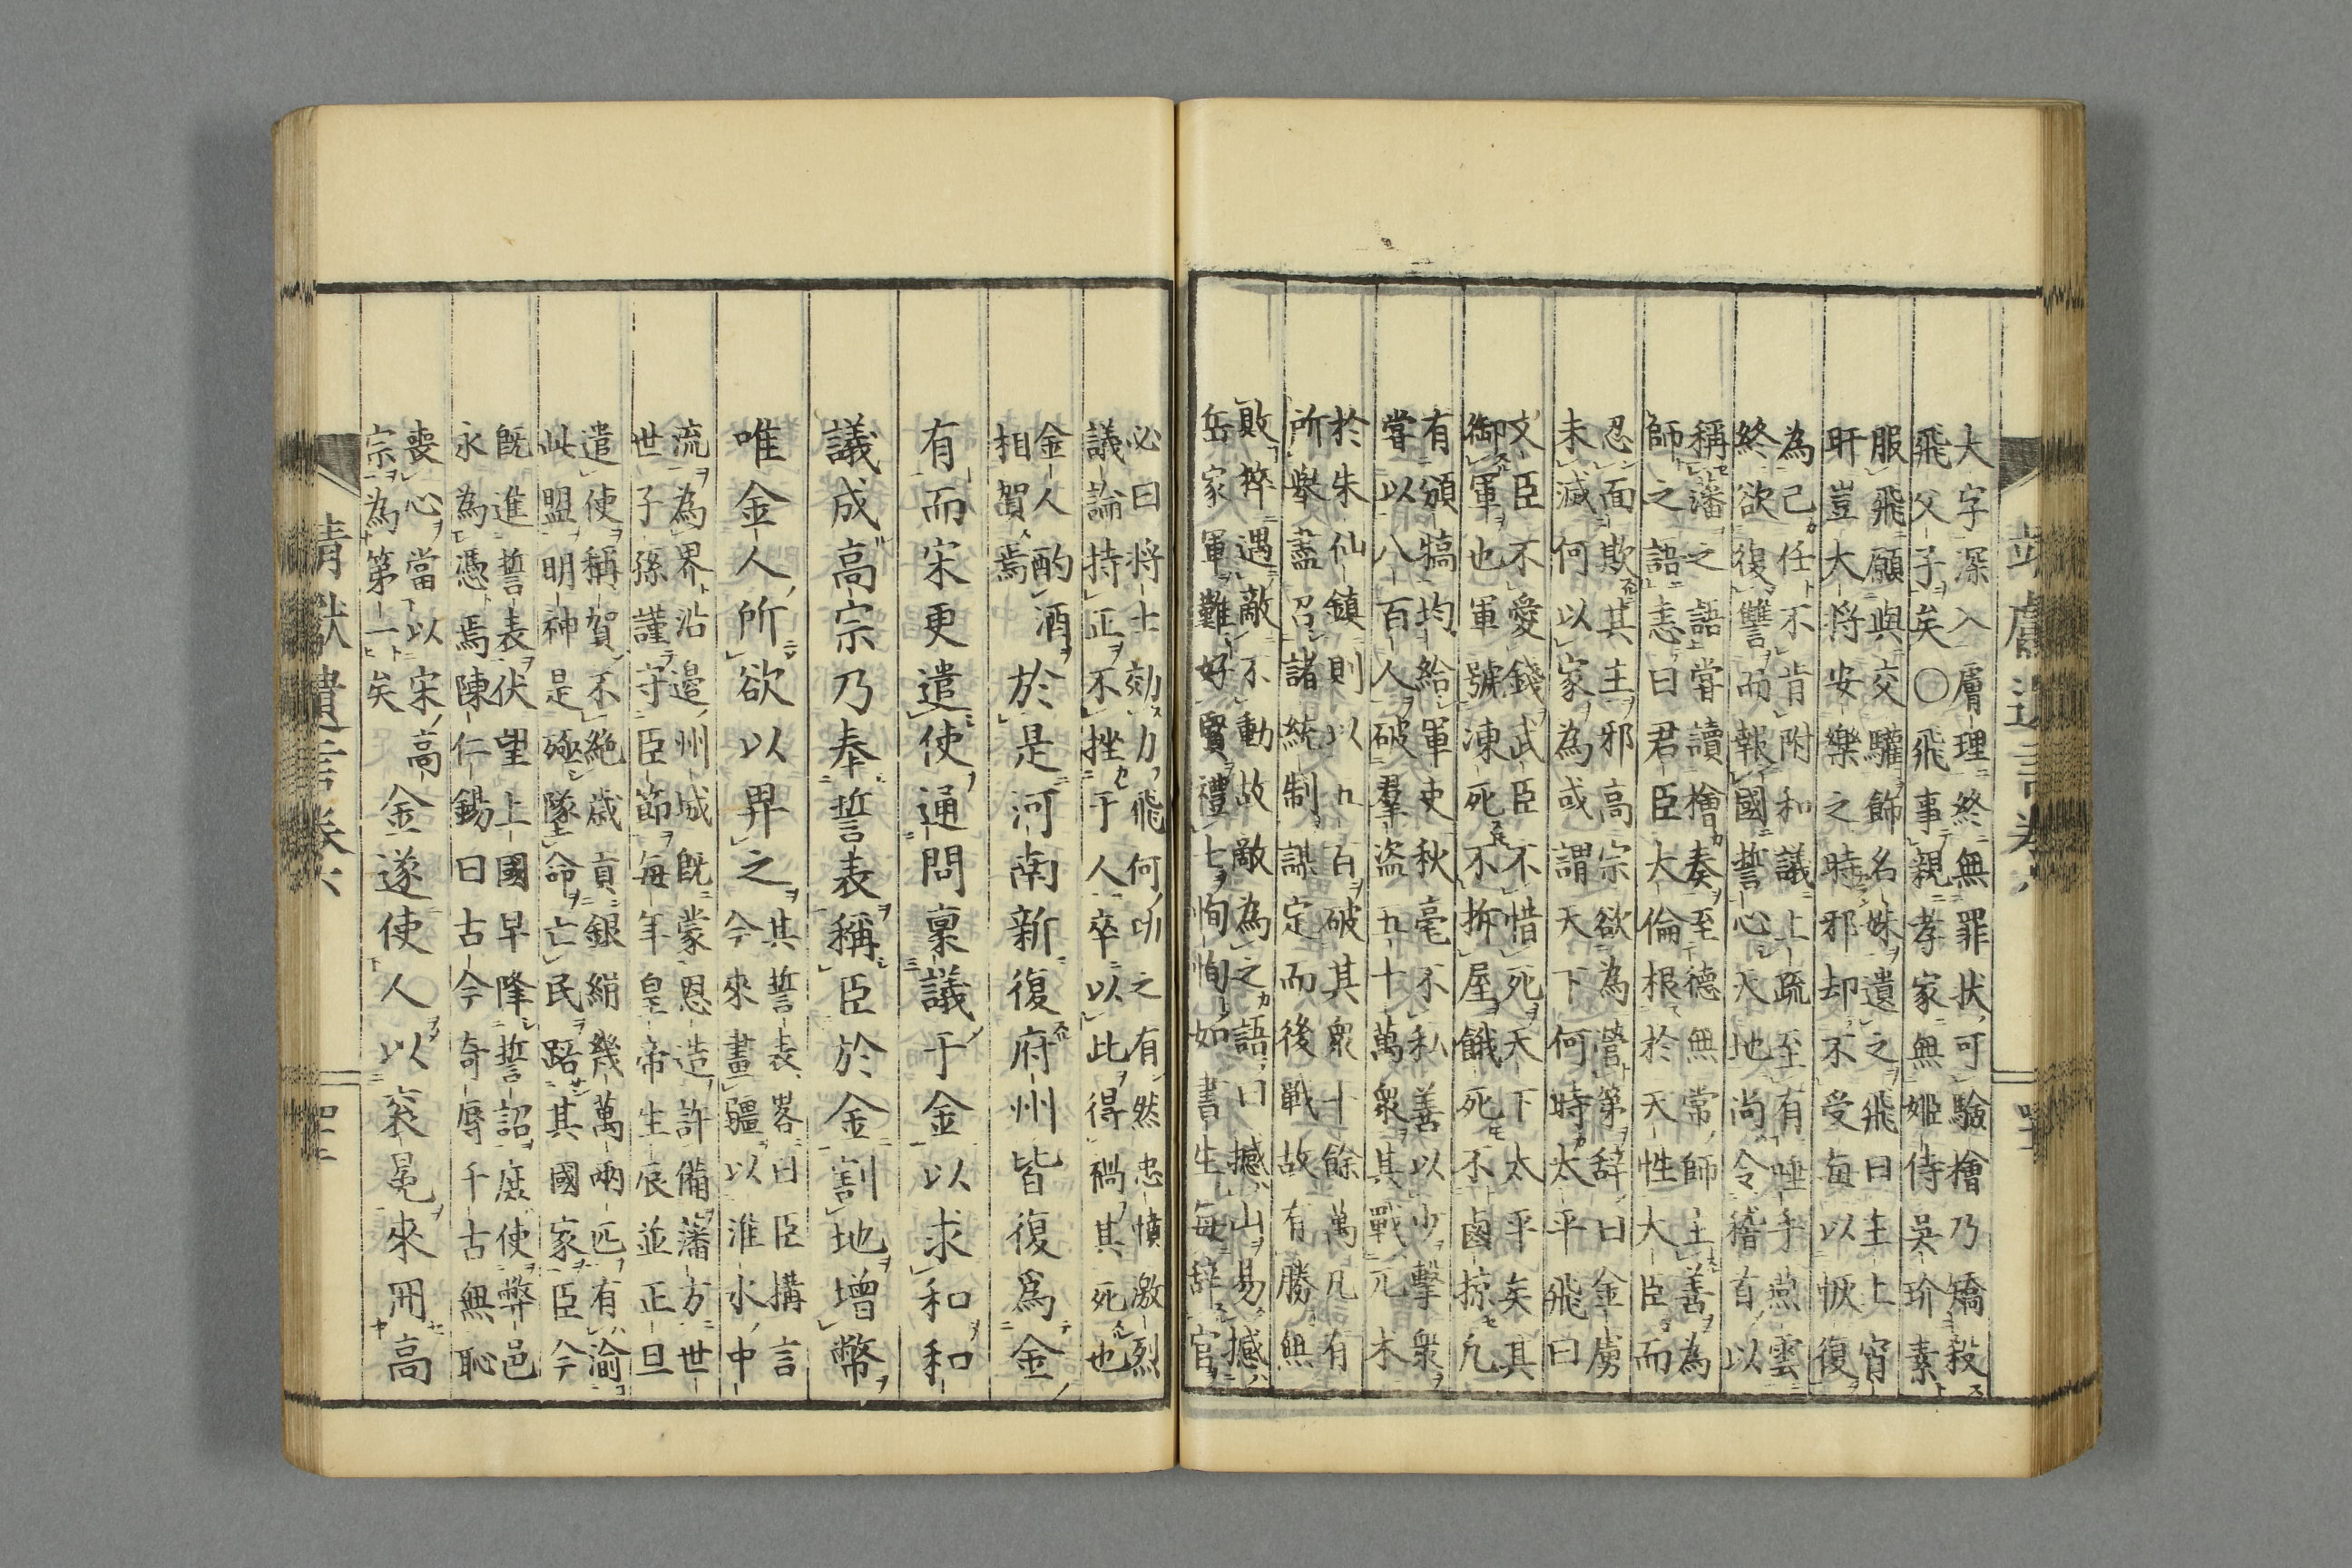 大字深入膚理終無罪状可驗檜乃矯殺
飛父子矣○飛事親孝家無姫侍吳玠素
服飛願與交驩飾名姝遺之飛曰主上宵
旰豈大将安樂之時邪却不受每以恢復
為己任不肯附和議上疏至有唾手燕雲
終欲復讐而報國誓心天地尚令稽首以
稱藩之語嘗讀檜奏至德無常師主善為
師之語恚曰君臣大倫根於天性大臣而
忍面欺其主邪高宗欲為營第辞曰金虜
未滅何以家為或謂天下何時太平飛曰
文臣不愛錢武臣不惜死天下太平矣其
御軍也軍號凍死不拆屋餓死不鹵掠凡
有頒犒均給軍吏秋毫不私善以少擊衆
嘗以八百人破羣盗五十萬衆其戰兀朮
於朱仙鎮則以五百破其衆十餘萬凡有
所舉盡召諸統制謀定而後戰故有勝無
敗猝遇敵不動故敵為之語曰撼山易撼
岳家軍難好賢禮士恂恂如書生每辞官
必曰将士効力飛何功之有然忠憤激烈
議論持正不挫于人卒以此得禍其死也
金人酌酒
相賀焉
於是河南新復府州皆復爲金
有而宋更遣使通問稟議于金以求和和
議成高宗乃奉誓表稱臣於金割地增幣
唯金人所欲以畀之
其誓表畧曰臣搆言
今來畫疆以淮水中
流為界沿邉州城既蒙恩造許備藩方世
世子孫謹守臣節每年皇帝生辰並正旦
遣使稱賀不絶歳貢銀絹幾萬兩匹有渝
此盟明神是殛墜命亡民踣其國家臣今
既進誓表伏望上國早降誓詔庶使弊邑
永為憑焉陳仁錫曰古今奇辱千古無恥
喪心當以宋高
宗為第一矣
金遂使人以衮冕來用高